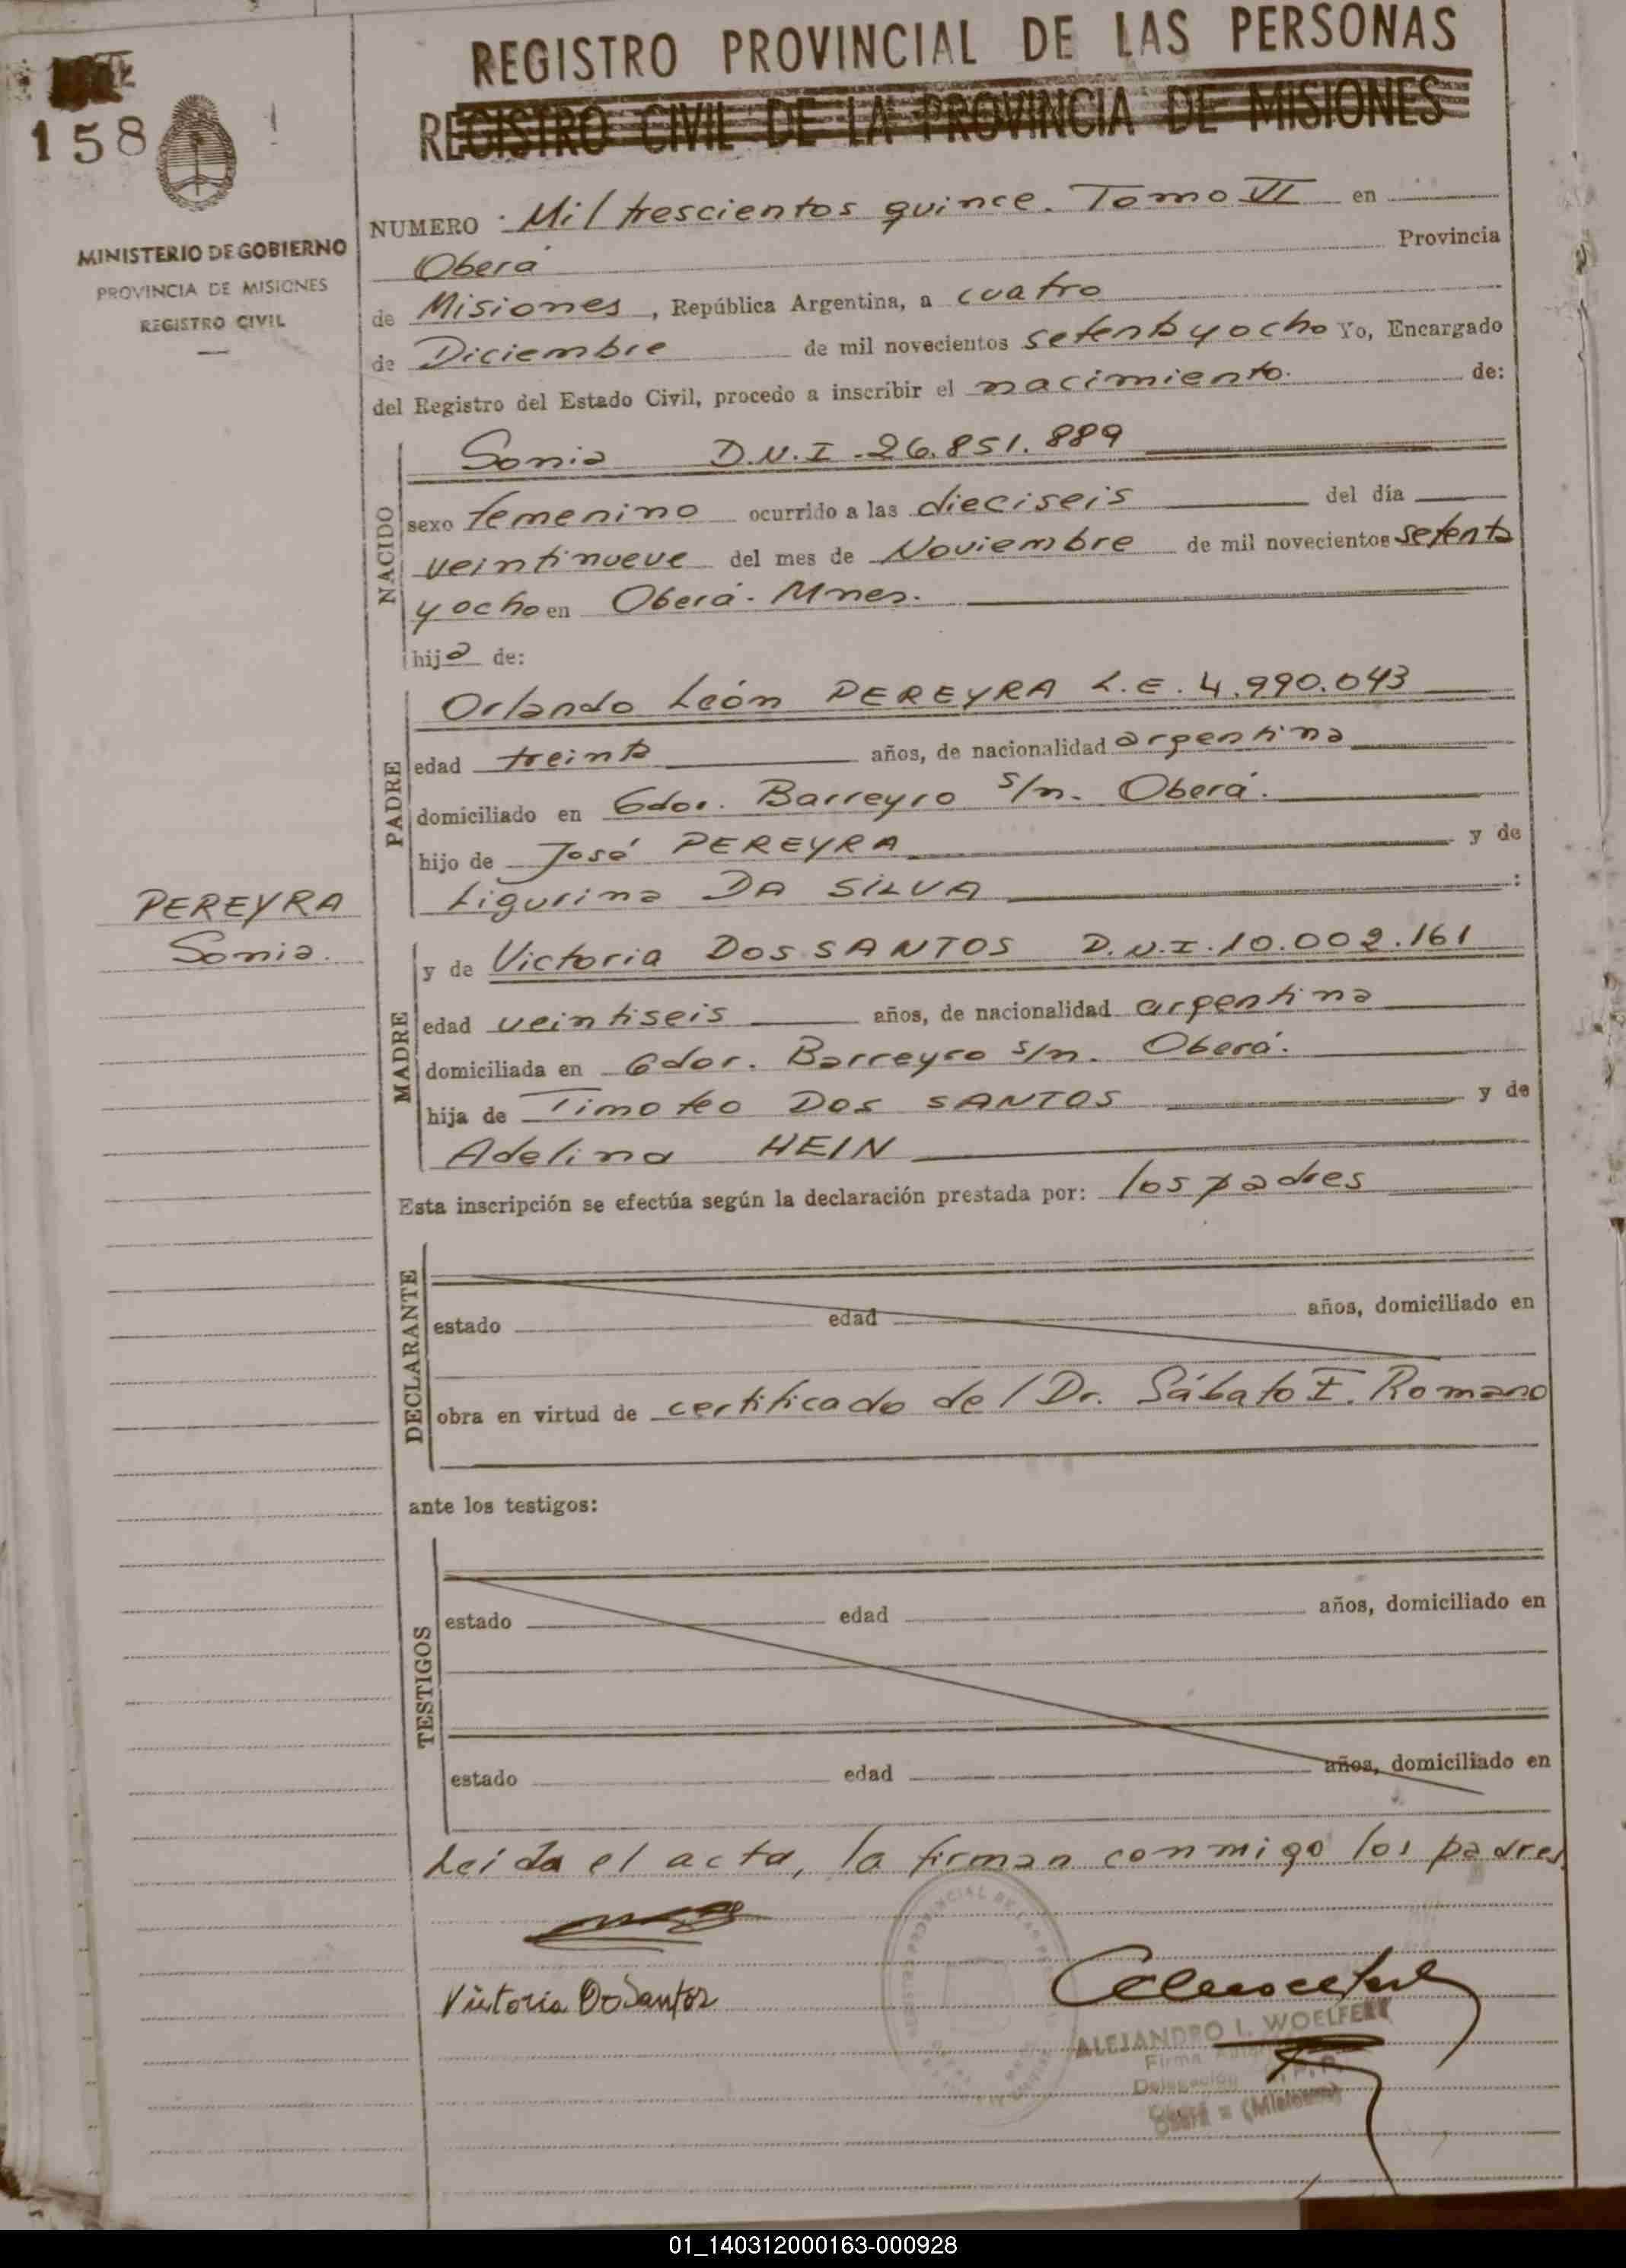 158
MINISTERIO DE GOBIERNO
PROVINCIA DE MISIONES
REGISTRO CIVIL
PEREYRA
Sonia.
REGISTRO PROVINCIAL DE LAS PERSONAS
REGISTRO CIVIL DE LA PROVINCIA DE MISIONES
NUMERO Mil trescientos quince. Tomo VI en
Oberá Provincia
de Misiones, República Argentina, a cuatro
de Diciembre de mil novecientos setenta y ocho Yo, Encargado
del Registro del Estado Civil, procedo a inscribir el nacimiento. de:
NACIDO
Sonia D.N.I. 26.851.889
sexo femenino ocurrido a las dieciseis del día
veintinueve del mes de Noviembre de mil novecientos setenta
y ocho en Oberá. Mnes.
hija de:
PADRE
Orlando León PEREYRA L.E. 4.990.043
edad treinta años, de nacionalidad argentina
domiciliado en Gdor. Barreyro s/n. Oberá.
hijo de José PEREYRA y de
Ligurina DA SILVA :
MADRE
y de Victoria DOS SANTOS D.N.I. 10.002.161
edad veintiseis años, de nacionalidad argentina
domiciliada en Gdor. Barreyro s/n. Oberá.
hija de Timoteo DOS SANTOS y de
Adelina HEIN
Esta inscripción se efectúa según la declaración prestada por: los padres
DECLARANTE
estado edad años, domiciliado en
obra en virtud de certificado del Dr. Sábato I. Romano
ante los testigos:
TESTIGOS
estado edad años, domiciliado en
estado edad años, domiciliado en
Leída el acta, la firman conmigo los padres
Victoria Do Santoz
ALEJANDRO I. WOELFERT
Firma
Delegación
Oberá = (Misiones)
01_140312000163-000928